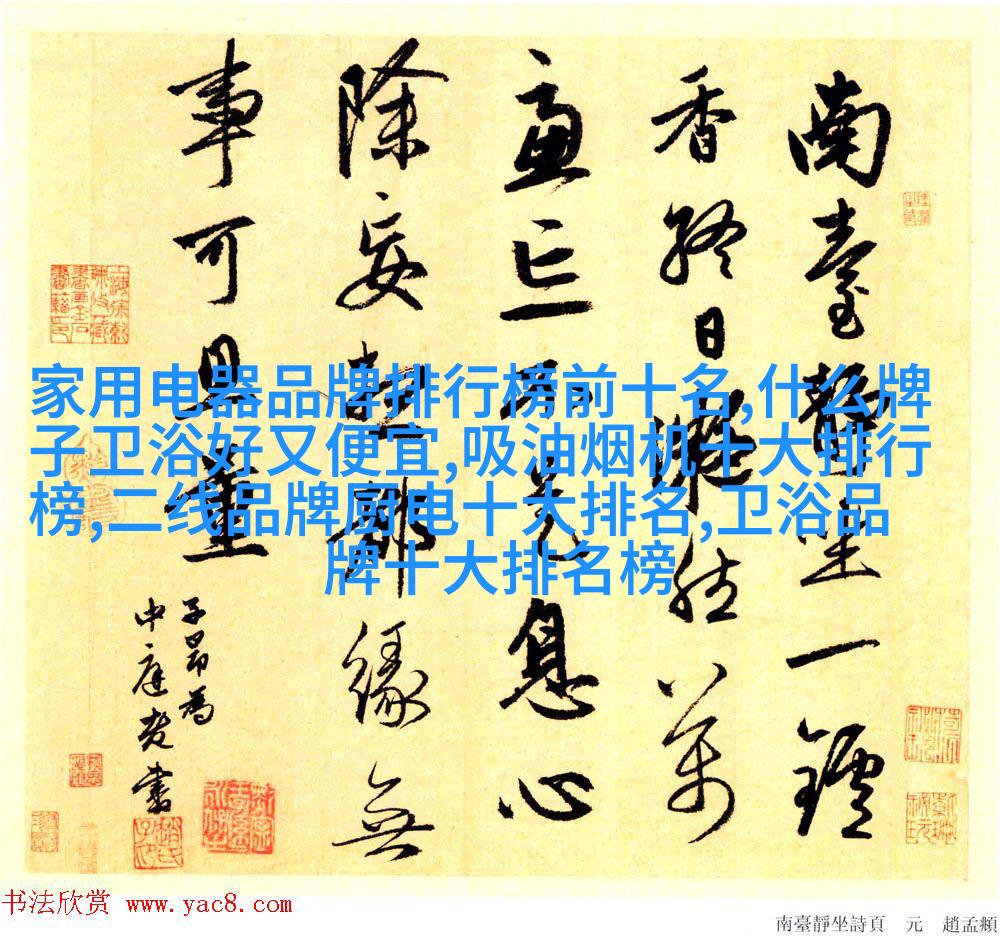 家用电器品牌排行榜前十名,什么牌
子卫浴好又便宜,吸油烟机十大排行
榜,二线品牌厨电十大排名,卫浴品
牌十大排名榜
南臺靜坐一鑪
香終日凝然萬
慮亡不是息心
除妄想都緣無
事可思量
子昂為
中庭老書
书法欣赏 www.yac8.com
南臺靜坐詩頁 元 趙孟頫